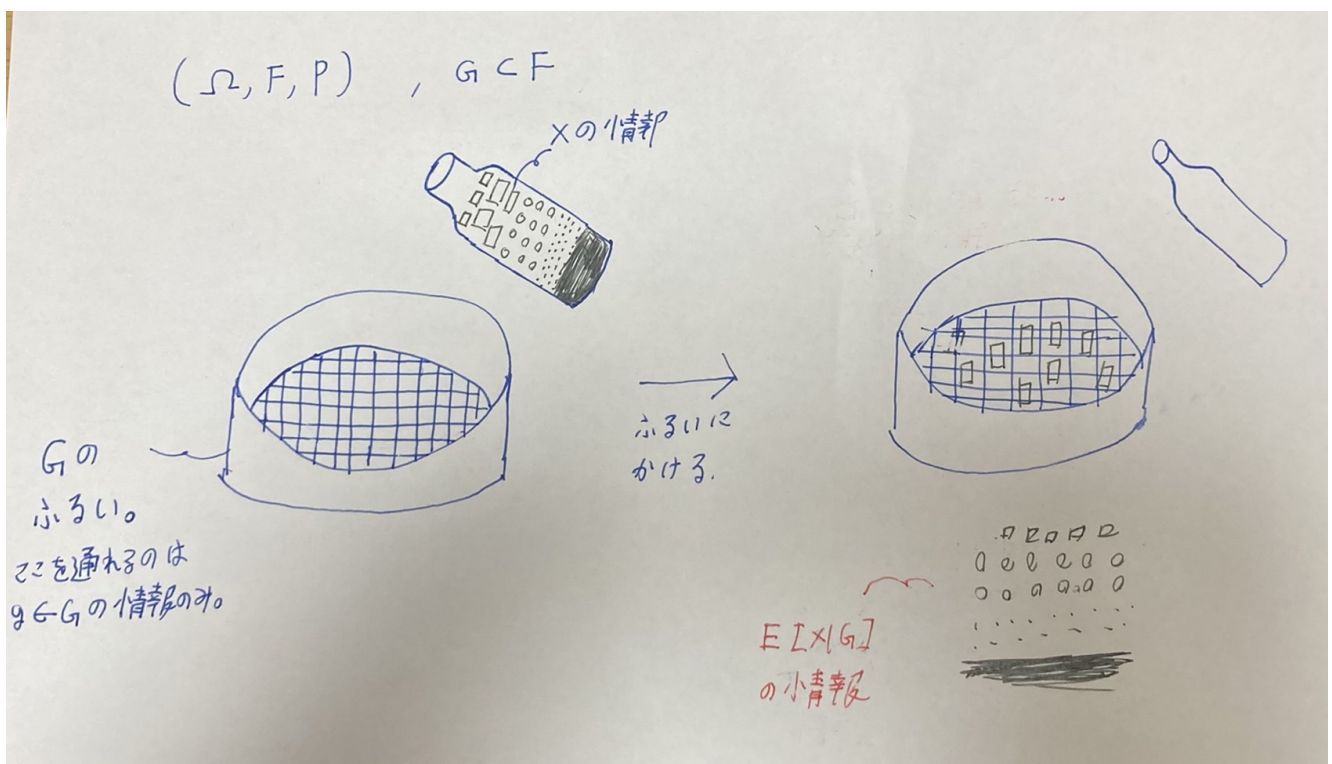 (Ω, F, P) , G ⊂ F
Xの情報
Gの
ふるい。
ここを通れるのは
g∈Gの情報のみ。
ふるいに
かける.
E[X|G]
の情報